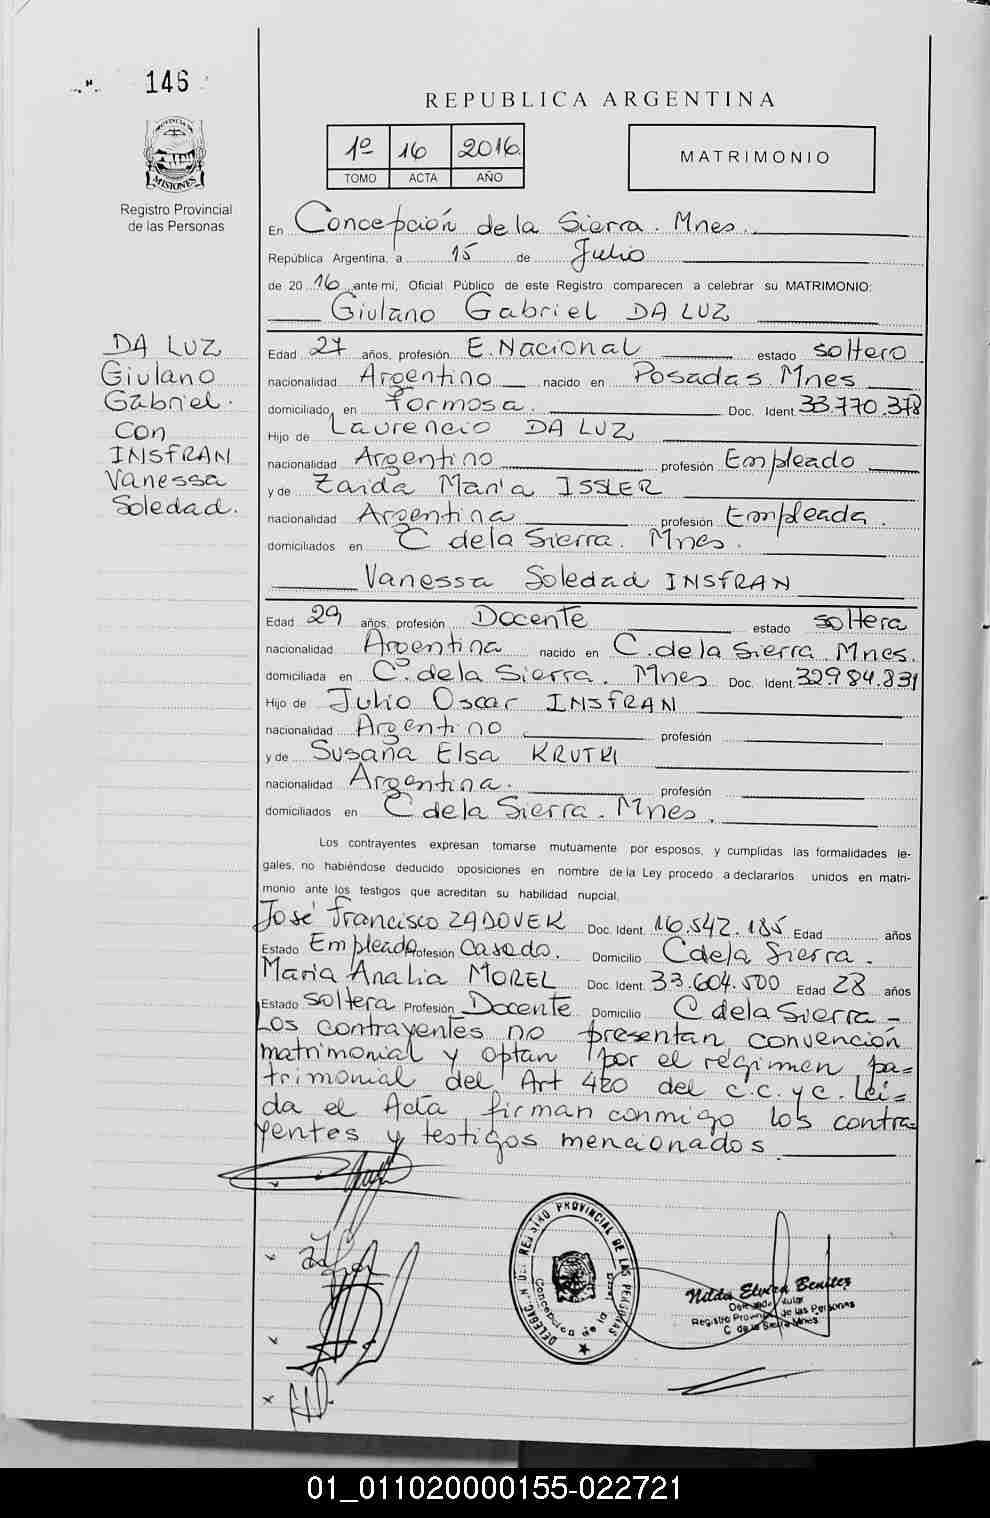 146
REPUBLICA ARGENTINA
1º 16 2016
TOMO ACTA AÑO
MATRIMONIO
PROVINCIA DE
MISIONES
Registro Provincial
de las Personas
En Concepción de la Sierra. Mnes.
República Argentina, a 15 de Julio
de 20 16 ante mi, Oficial Público de este Registro comparecen a celebrar su MATRIMONIO:
Giulano Gabriel DA LUZ
DA LUZ
Giulano
Gabriel.
Con
INSFRAN
Vanessa
Soledad.
Edad 27 años, profesión E. Nacional estado soltero
nacionalidad Argentino nacido en Posadas Mnes
domiciliado en Formosa. Doc. Ident. 33.770.378
Hijo de Laurencio DA LUZ
nacionalidad Argentino profesión Empleado
y de Zaida Maria ISSLER
nacionalidad Argentina profesión Empleada.
domiciliados en C de la Sierra. Mnes.
Vanessa Soledad INSFRAN
Edad 29 años, profesión Docente estado soltera
nacionalidad Argentina nacido en C. de la Sierra Mnes.
domiciliada en C. de la Sierra. Mnes Doc. Ident. 32984.831
Hijo de Julio Oscar INSFRAN
nacionalidad Argentino profesión
y de Susana Elsa KRUTKI
nacionalidad Argentina. profesión
domiciliados en C de la Sierra. Mnes.
Los contrayentes expresan tomarse mutuamente por esposos, y cumplidas las formalidades le-
gales, no habiéndose deducido oposiciones en nombre de la Ley procedo a declararlos unidos en matri-
monio ante los testigos que acreditan su habilidad nupcial,
José Francisco ZADOVEK Doc. Ident. 16.542.185 Edad años
Estado Empleado Profesión Casado. Domicilio C de la Sierra.
Maria Analia MOREL Doc. Ident. 33.604.500 Edad 28 años
Estado soltera Profesión Docente Domicilio C de la Sierra -
Los contrayentes no presentan convención
matrimonial y optan por el régimen pa=
trimonial del Art 420 del c.c. y c. Lei=
da el Acta firman conmigo los contra=
yentes y testigos mencionados
DELEGAC. N DEL REGISTRO PROVINCIAL DE LAS PERSONAS
Concepcion de la Sierra
Nilda Elvira Benitez
Delegada Titular
Registro Provincial de las Personas
C de la Sierra Mnes
01_011020000155-022721